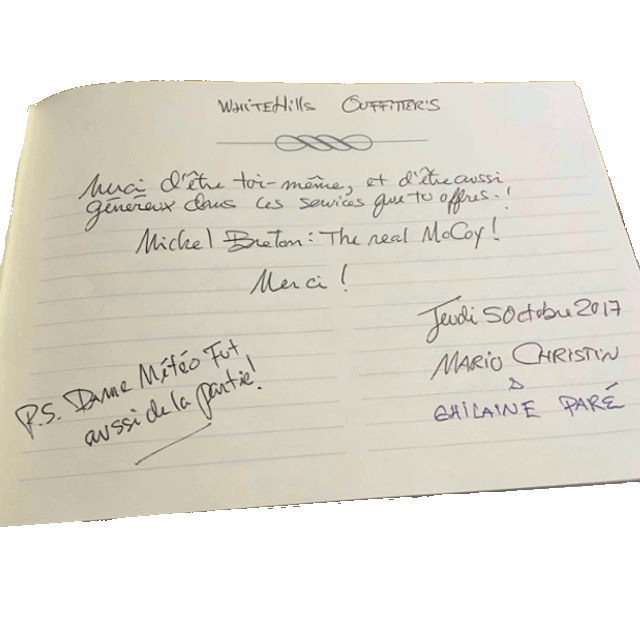 WHITEHills OUFFITTER'S
Merci d'être toi-même, et d'être aussi
généreux dans ces services que tu offres.!
Michel Breton: The real McCoy!
Merci!
Jeudi 5 Octobre 2017
MARIO CHRISTIN
&
GHILAINE PARÉ
P.S. Dame Météo Fut
aussi de la partie!